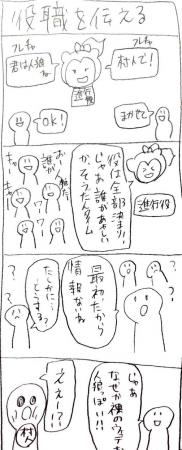 役職を伝える
フレチャ
村人で!
フレチャ
君は人狼ね
進行役
OK!
まかせて
役は全部決まり!
じゃあ誰があやしい
か、そうだんタイム
進行役
お、人狼だ
誰が
キャー
ワー
ワー
キャー
最初だから
情報ないね
たしかに…
どうする?
?
?
?
?
じゃあ
なぜか裸の
人狼っぽい!!
ええー!?
村人